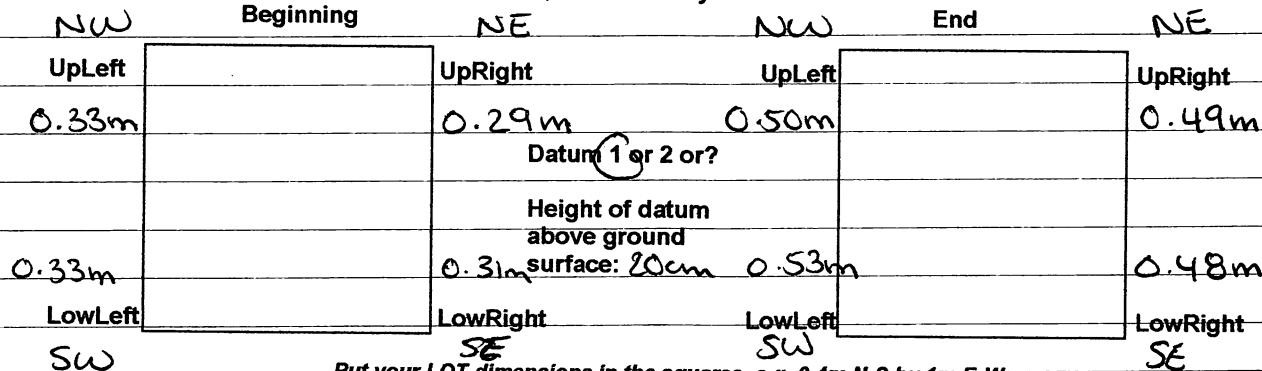 Beginning
End
NW NE NW NE
UpLeft UpRight UpLeft UpRight
0.33m 0.29m 0.50m 0.49m
Datum 1 or 2 or?
Height of datum
above ground
surface: 20cm
0.33m 0.31m 0.53m 0.48m
LowLeft LowRight LowLeft LowRight
SW SE SW SE
Put your LOT dimensions in the squares, e.g. 0.4m N-S by 1m E-W